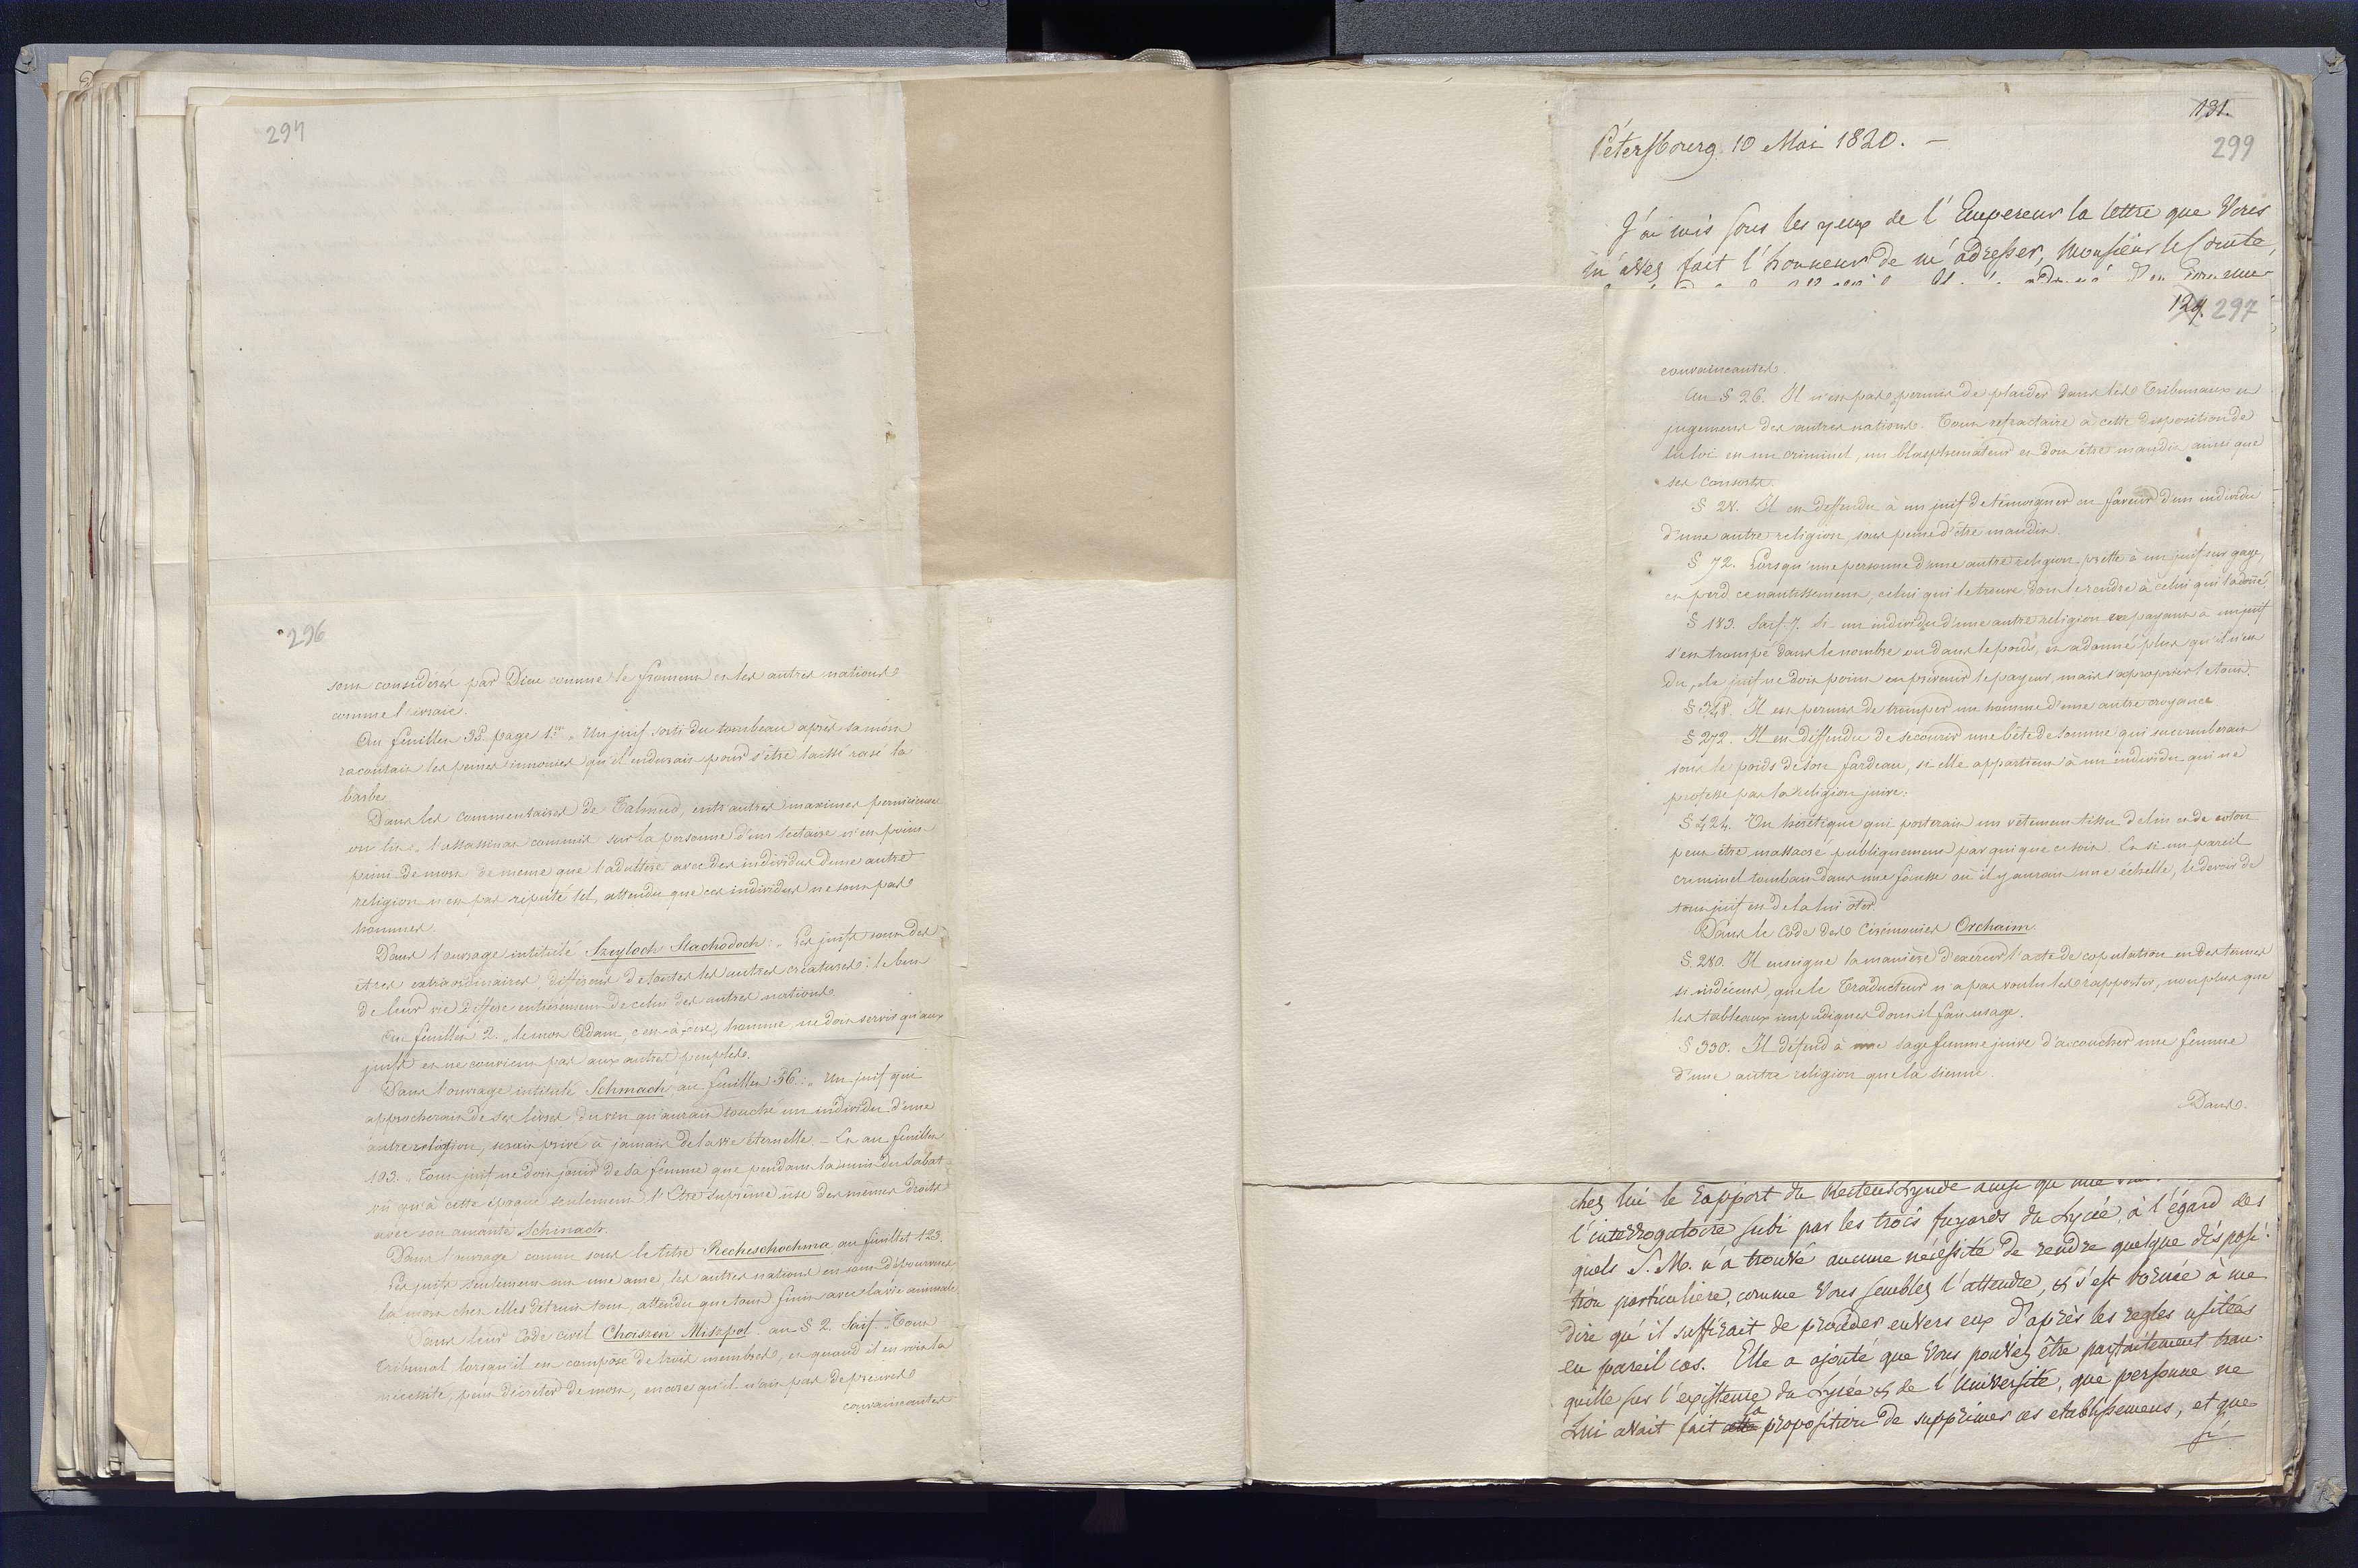 294
296
sont considérés par Dieu comme le froment et les autres nations
comme l'ivraie.
Au feuillet 35. page 1re „ Un juif sorti du tombeau après sa mort
racontait les peines innouies qu'il endurait pour s'être laissé rasé la
barbe
Dans les commentaires de Talmud, entr'autres maximes pernicieuses
on lit: „ l'assassinat commis sur la personne d'un sectaire n'est point
puni de mort de meme que l'adultère avec des individus d'une autre
religion n'est pas réputé tel, attendu que ces individus ne sont pas
hommes.
Dans l'ouvrage intitulé Szeyloch Slachodoch: „ Les juifs sont des
êtres extraordinaires, différens de toutes les autres créatures: le but
de leur vie differe entièrement de celui des autres nations.
Au feuillet 2. „ le mot Adam, c'est-à-dire, homme, ne doit servir qu'aux
juifs et ne convient pas aux autres peuples.
Dans l'ouvrage intitulé Schmach, au feuillet 56: „ Un juif qui
approcherait de ses lèvres du vin qu'aurait touché un individu d'une
autre religion, serait privé à jamais de la vie éternelle. — Et au feuillet
193. „ Tout juif ne doit jouir de sa femme que pendant la nuit du Sabat
vû qu'à cette époque seulement l'Etre suprême use des memes droits
avec son amante Schinach.
Dans l'ouvrage connu sous le titre Recheschochma, au feuillet 123.
Les juifs seulement ont une ame, les autres nations en sont dépourvues
la mort chez elles detruit tout, attendu que tout finit avec la vie animale.
Dans leur Code civil Choiszen Miszpot au § 2. Saif. : Tout
Tribunal lorsqu'il est composé de trois membres, et quand il en voit la
nécessité, peut décréter de mort, encore qu'il n'ait pas de preuves
convaincantes
131.
299
Pétersbourg 10 Mai 1820. —
J'ai mis sous les yeux de l'Empereur la lettre que Vous
m'avez fait l'honneur de m'adresser, Monsieur le Comte,
129. 297
convaincantes.
Au § 26. Il n'est pas permis de plaider dans les Tribunaux et
jugemens des autres nations. Tout réfractaire à cette disposition de
la loi est un criminel, un blasphémateur et doit être maudit ainsi que
ses consorts.
§ 28. Il est deffendu à un juif de témoigner en faveur d'un individu
d'une autre religion, sous peine d'être maudit.
§ 72. Lorsqu'une personne d'une autre religion prette à un juif sur gage,
et perd ce nantissement, celui qui le trouve doit le rendre à celui qui l'a donné.
§ 183. Saif. 7. Si un individu d'une autre religion en payant à un juif
s'est trompé dans le nombre ou dans le poids, et a donné plus qu'il n'est
du, le juif ne doit point en prévenir le payeur, mais s'approprier le tout.
§ 348. Il est permis de tromper un homme d'une autre croyance
§ 272. Il est déffendu de secourir une bête de somme qui succomberait
sous le poids de son fardeau, si elle appartient à un individu qui ne
professe pas la religion juive.
§ 424. Un hérétique qui porterait un vêtement tissu de lin et de coton
peut être massacré publiquement par qui que ce soit. Et si un pareil
criminel tombait dans une fosse où il y aurait une échelle, le devoir de
tout juif est de la lui ôter
Dans le Code des Cérémonies Orchaim.
§. 280. Il enseigne la manière d'exercer l'acte de copulation en des termes
si indécens, que le Traducteur n'a pas voulu les rapporter, non plus que
les tableaux impudiques dont il fait usage.
§ 330. Il défend à une sage femme juive d'accoucher une femme
d'une autre religion que la sienne.
Dans.
chez lui le Rapport du Recteur Lynde ainsi que
l'interrogatoire subi par les trois fuyards du Lycée, à l'égard des
quels S. M. n'a trouvé aucune nécessité de rendre quelque disposi:
tion particulière, comme Vous semblez l'attendre, & s'est bornée à me
dire qu'il suffirait de procéder envers eux d'après les regles usitées
en pareil cas. Elle a ajouté que Vous pouvez être parfaitement tran:
quille sur l'existence du Lycée & de l'Université, que personne ne
Lui avait fait la proposition de supprimer ces etablissemens, et que
si